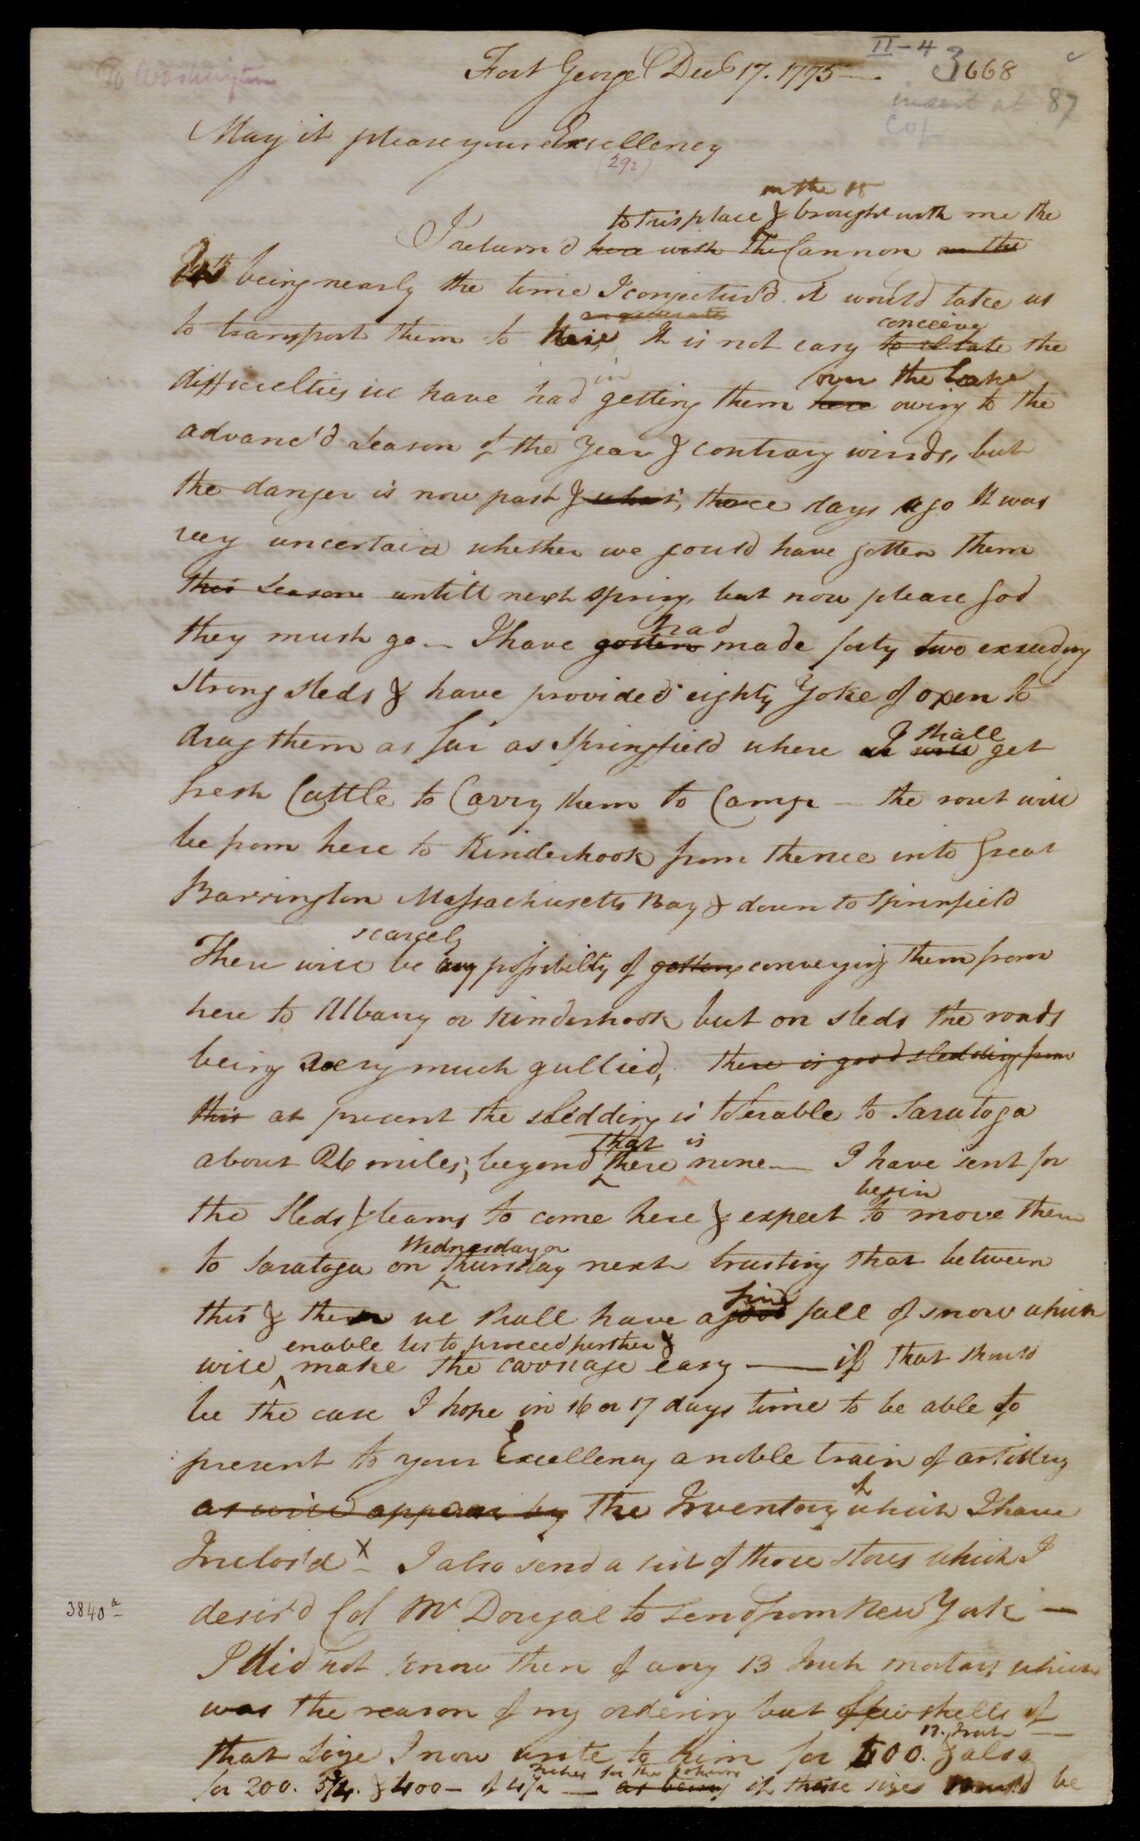 To Washington
II-4
3668
insert at 87
Fort George Decb 17. 1775 —
May it please your Excellency
(292)
on the 15
to this place & brought with me the
I return'd here with the Cannon on the
being nearly the time I conjectur'd it would take us
conceive
to transport them to here, It is not easy to state the
in over the Lake
difficulties we have had getting them here owing to the
advanc'd Season of the Year & contrary winds, but
the danger is now past & three days ago It was
very uncertain whether we could have gotten them
this Season untill next spring, but now please God
had
they must go — I have gotten made forty two exceeding
strong sleds & have provided eighty Yoke of oxen to
I shall
drag them as far as Springfield where we will get
fresh Cattle to Carry them to Camp — the rout will
be from here to Kinderhook from thence into Great
Barrington Massachusetts Bay & down to Springfield
scarcely
There will be any possibilty of getting conveying them from
here to Albany or Kinderhook but on sleds the roads
being very much gullied, there is good sledding from
this at present the sledding is tolerable to Saratoga
that is
about 26 miles; beyond there none — I have sent for
begin
the Sleds & teams to come here & expect to move them
Wednesday or
to Saratoga on Thursday next trusting that between
fine
this & then we shall have a good fall of snow which
enable us to proceed further &
will make the carriage easy — if that should
be the case I hope in 16 or 17 days time to be able to
present to your Excellency a noble train of artillery
of
as will appear by The Inventory which I have
Inclos'd x — I also send a list of those stores which I
3840a
desir'd Col McDougal to send from New York —
I did not know then of any 13 Inch mortars which
was the reason of my ordering but few shells of
13. Inch
that size I now write to him for 500. & also
Inches for the Cohorns
for 200. 5¾. & 400 — of 4½ — as being if these sizes be